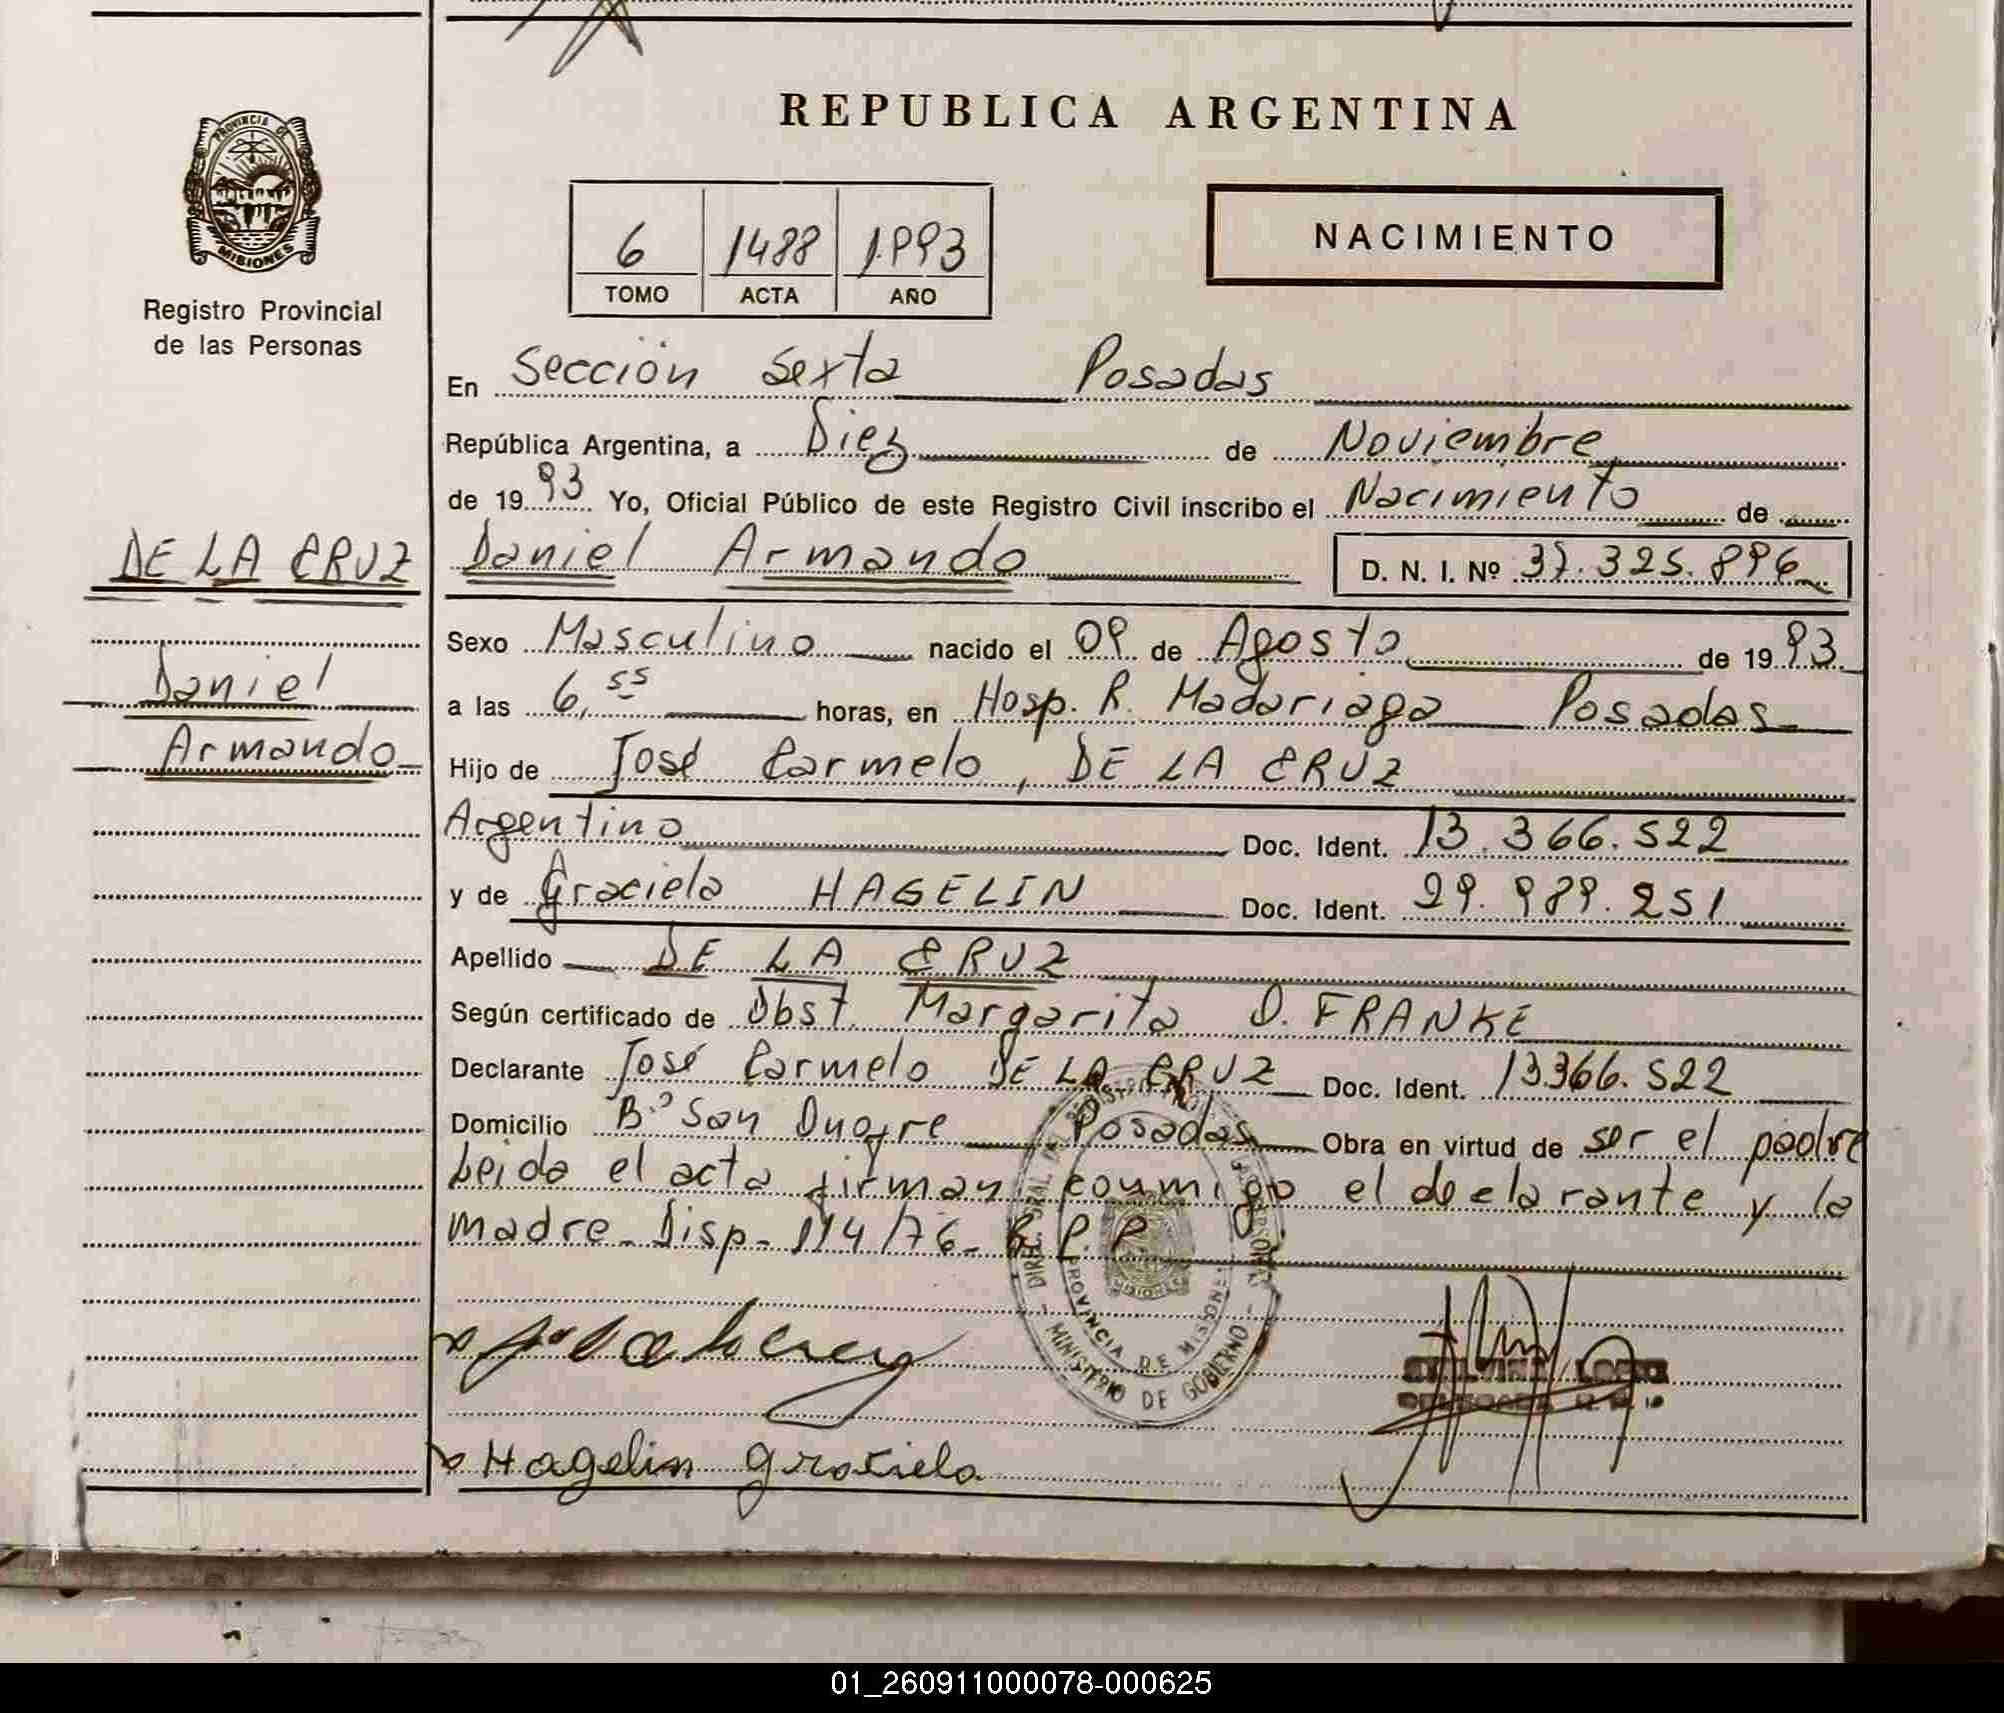 REPUBLICA ARGENTINA
PROVINCIA DE
MISIONES
Registro Provincial
de las Personas
6 1488 1.993
TOMO ACTA AÑO
NACIMIENTO
En Sección Sexta Posadas
República Argentina, a Diez de Noviembre
de 1993 Yo, Oficial Público de este Registro Civil inscribo el Nacimiento de
DE LA CRUZ
Daniel
Armando
Daniel Armando D. N. I. Nº 37.325.896
Sexo Masculino nacido el 09 de Agosto de 1993
a las 6,55 horas, en Hosp. R. Madariaga Posadas
Hijo de José Carmelo, DE LA CRUZ
Argentino Doc. Ident. 13.366.522
y de Graciela HAGELIN Doc. Ident. 29.989.251
Apellido DE LA CRUZ
Según certificado de Obst. Margarita D. FRANKE
Declarante José Carmelo DE LA CRUZ Doc. Ident. 13366.522
Domicilio Bº San Onofre Posadas Obra en virtud de ser el padre
Leida el acta firman conmigo el declarante y la
madre - Disp - 114/76 - R.P.P
PROVINCIA DE MISIONES
MINISTERIO DE GOBIERNO
Hagelin graciela
01_260911000078-000625